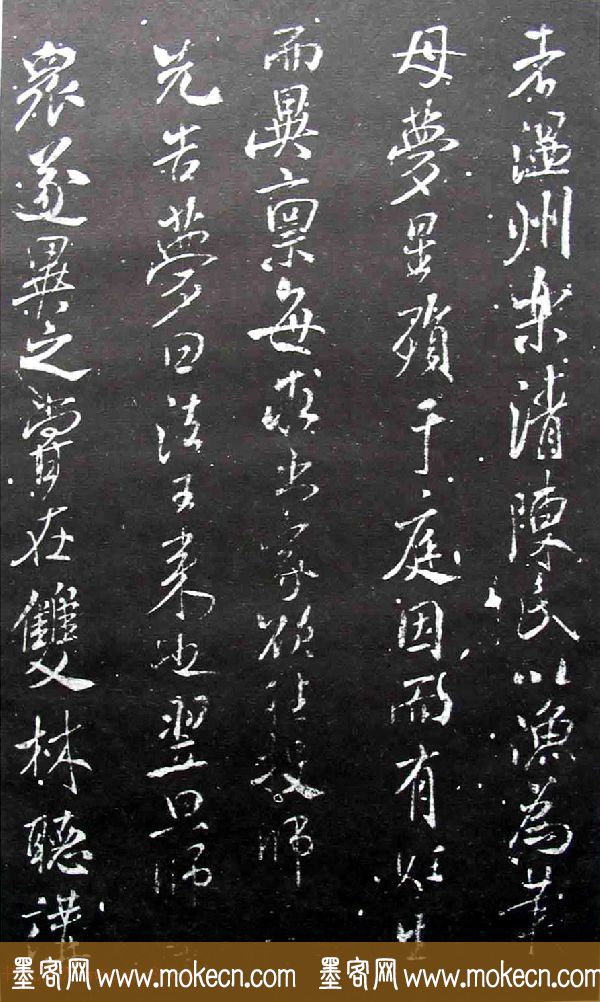 者温州樂清陳氏以漁為業
母夢星殞于庭因而有妊生
而異稟每求出家欲往投師
先告夢曰法王来也翌旦師
眾遂異之嘗在雙林聽講
墨客网 www.mokecn.com 墨客网 www.mokecn.com